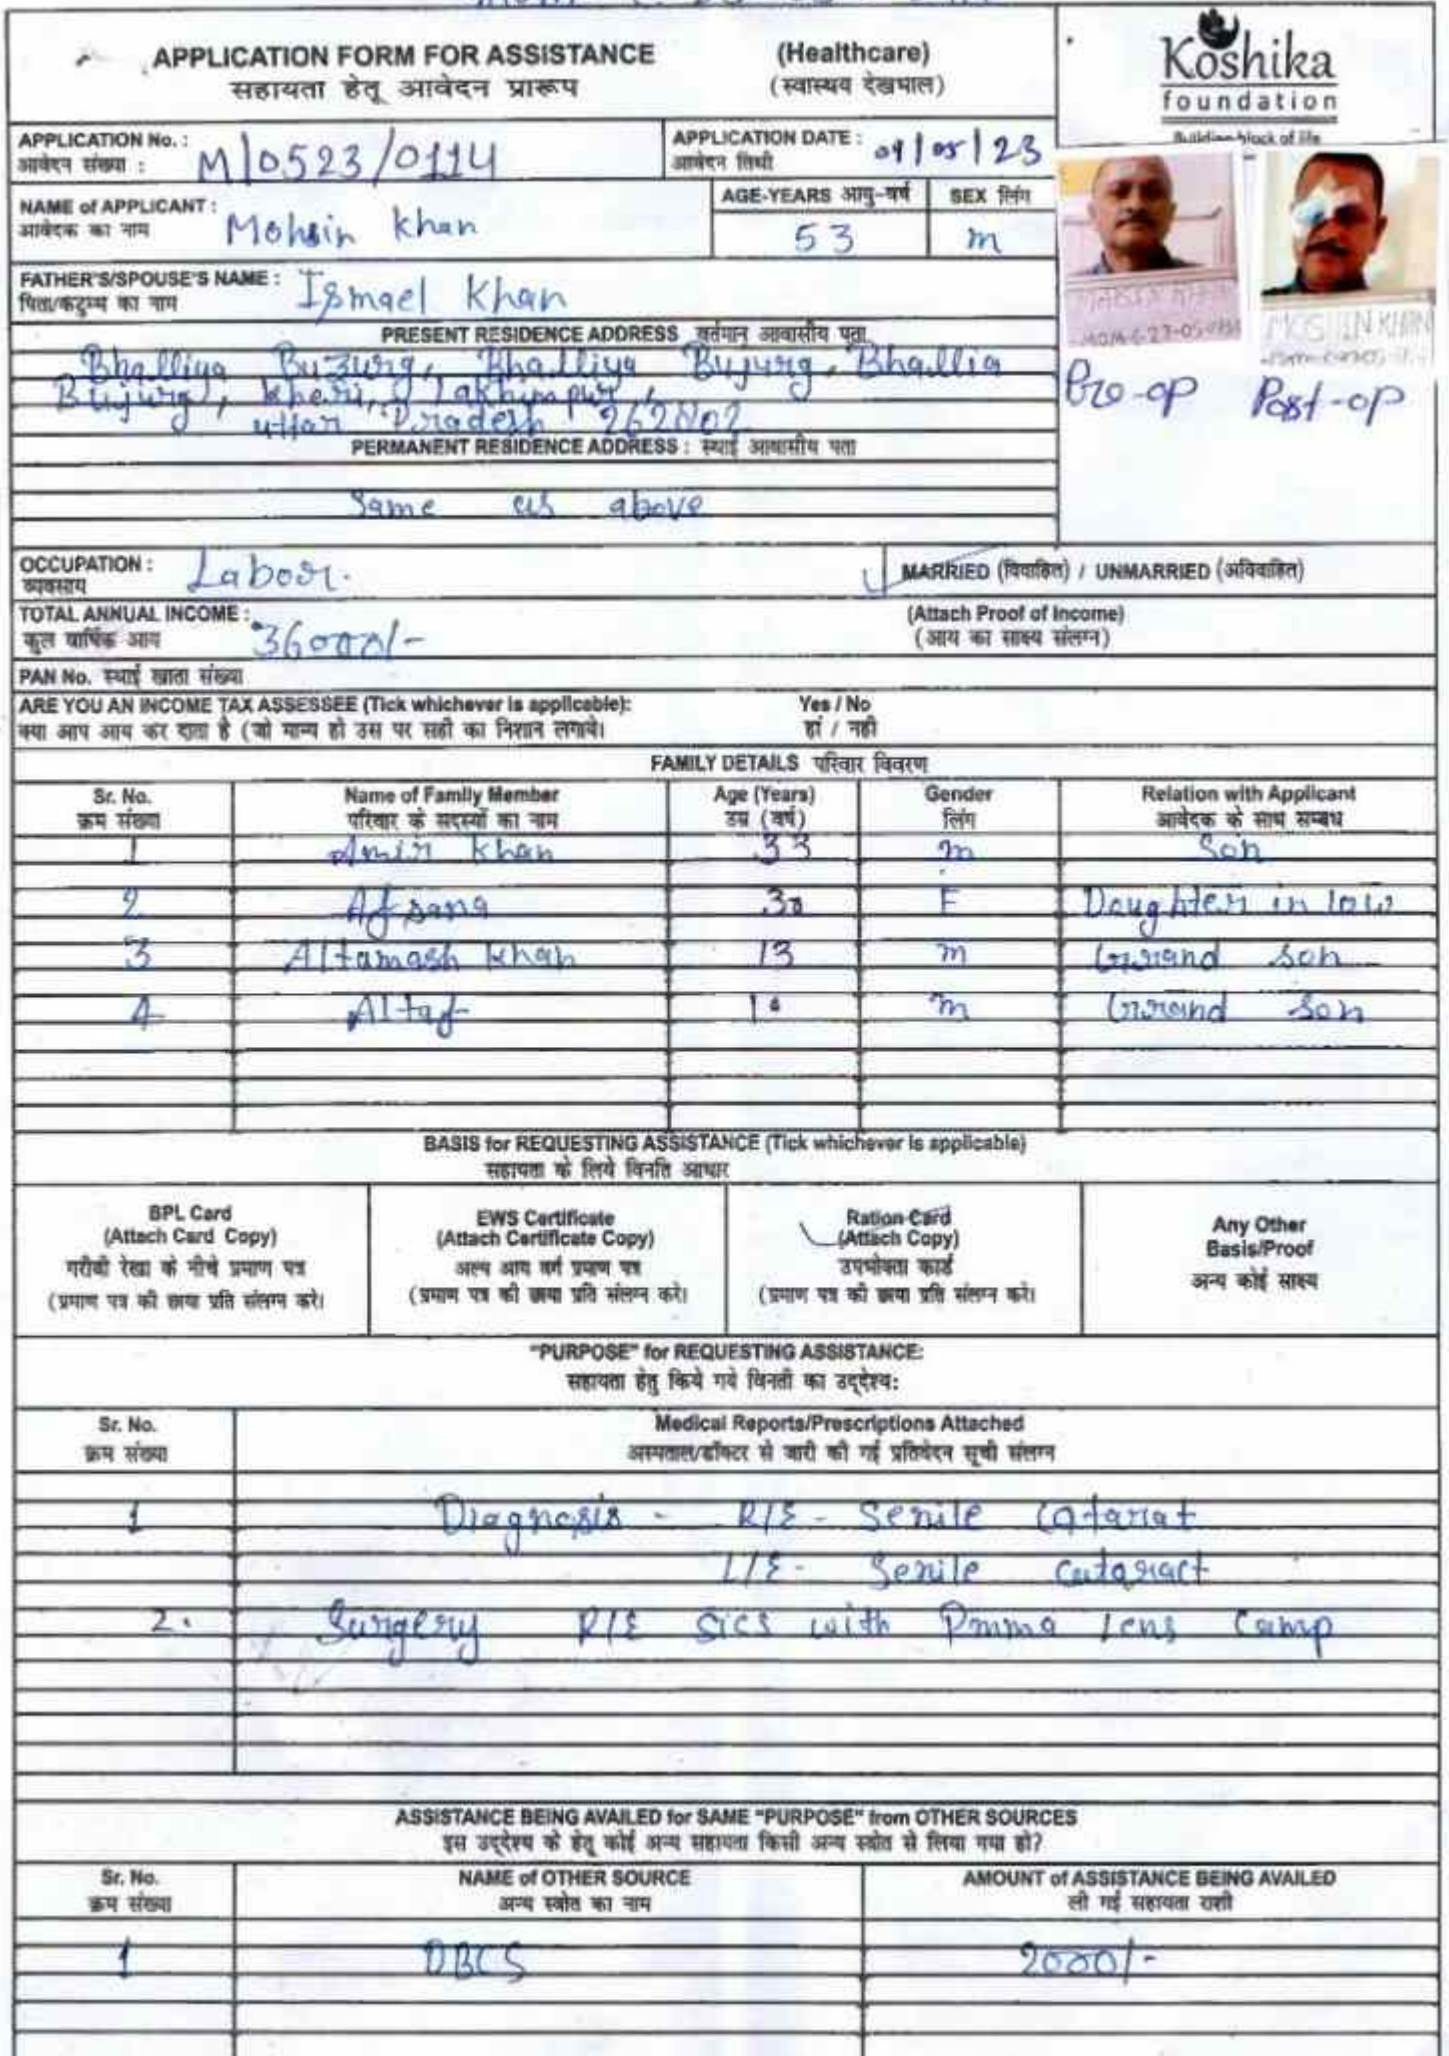 APPLICATION FORM FOR ASSISTANCE (Healthcare)
सहायता हेतू आवेदन प्रारूप (स्वास्थय देखभाल)
Koshika
foundation
Building block of life
APPLICATION No. : M/0523/0114
आवेदन संख्या :
APPLICATION DATE : 09/05/23
आवेदन तिथी
NAME of APPLICANT : Mohsin Khan
आवेदक का नाम
AGE-YEARS आयु-वर्ष SEX लिंग
53 m
FATHER'S/SPOUSE'S NAME : Ismael Khan
पिता/कटुम्ब का नाम
MOSHIN KHAN
Pre-op Post-op
PRESENT RESIDENCE ADDRESS वर्तमान आवासीय पता
Bhalliya Buzurg, Bhalliya Bujurg, Bhallia
Bujurg, Kheri, Lakhimpur,
uttar Pradesh 262802
PERMANENT RESIDENCE ADDRESS : स्थाई आवासीय पता
Same as above
OCCUPATION : Labour.
व्यवसाय
MARRIED (विवाहित) / UNMARRIED (अविवाहित)
TOTAL ANNUAL INCOME : 36000/-
कुल वार्षिक आय
(Attach Proof of Income)
(आय का साक्ष्य संलग्न)
PAN No. स्थाई खाता संख्या
ARE YOU AN INCOME TAX ASSESSEE (Tick whichever is applicable): Yes / No
क्या आप आय कर दाता है (जो मान्य हो उस पर सही का निशान लगाये। हां / नही
FAMILY DETAILS परिवार विवरण
Sr. No. Name of Family Member Age (Years) Gender Relation with Applicant
क्रम संख्या परिवार के सदस्यों का नाम उम्र (वर्ष) लिंग आवेदक के साथ सम्बध
1 Amir Khan 33 m Son
2 Afsana 30 F Daughter in low
3 Altamash Khan 13 m Grand son
4 Altaf 10 m Grand son
BASIS for REQUESTING ASSISTANCE (Tick whichever is applicable)
सहायता के लिये विनति आधार
BPL Card
(Attach Card Copy)
गरीबी रेखा के नीचे प्रमाण पत्र
(प्रमाण पत्र की छाया प्रति संलग्न करे।
EWS Certificate
(Attach Certificate Copy)
अल्प आय वर्ग प्रमाण पत्र
(प्रमाण पत्र की छाया प्रति संलग्न करे।
Ration Card
(Attach Copy)
उपभोक्ता कार्ड
(प्रमाण पत्र की छाया प्रति संलग्न करे।
Any Other
Basis/Proof
अन्य कोई साक्ष्य
"PURPOSE" for REQUESTING ASSISTANCE:
सहायता हेतु किये गये विनती का उद्देश्य:
Sr. No. Medical Reports/Prescriptions Attached
क्रम संख्या अस्पताल/डॉक्टर से जारी की गई प्रतिवेदन सूची संलग्न
1 Diagnosis - R/E - Senile Catarat
L/E - Senile Cataract
2. Surgery R/E SICS with Pmma lens Camp
ASSISTANCE BEING AVAILED for SAME "PURPOSE" from OTHER SOURCES
इस उद्देश्य के हेतू कोई अन्य सहायता किसी अन्य स्त्रोत से लिया गया हो?
Sr. No. NAME of OTHER SOURCE AMOUNT of ASSISTANCE BEING AVAILED
क्रम संख्या अन्य स्त्रोत का नाम ली गई सहायता राशी
1 DBCS 2000/-